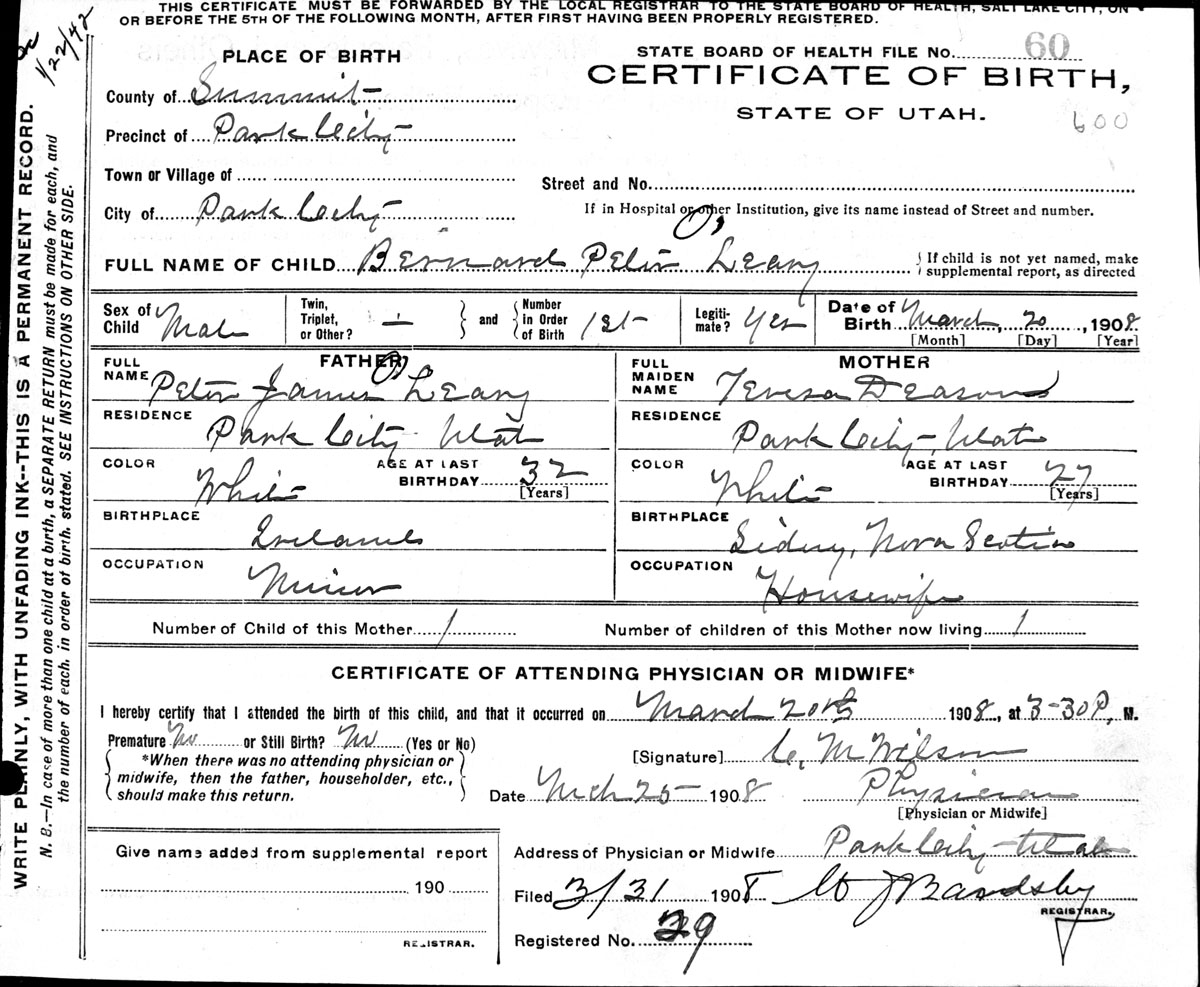 THIS CERTIFICATE MUST BE FORWARDED BY THE LOCAL REGISTRAR TO THE STATE BOARD OF HEALTH, SALT LAKE CITY, ON
OR BEFORE THE 5TH OF THE FOLLOWING MONTH, AFTER FIRST HAVING BEEN PROPERLY REGISTERED.
1/22/42
WRITE PLAINLY, WITH UNFADING INK--THIS IS A PERMANENT RECORD.
N. B.—In case of more than one child at a birth, a SEPARATE RETURN must be made for each, and
the number of each, in order of birth, stated. SEE INSTRUCTIONS ON OTHER SIDE.
PLACE OF BIRTH
STATE BOARD OF HEALTH FILE No. 60
CERTIFICATE OF BIRTH,
STATE OF UTAH.
600
County of Summit
Precinct of Park City
Town or Village of
Street and No.
City of Park City
If in Hospital or other Institution, give its name instead of Street and number.
FULL NAME OF CHILD Bernard Peter O' Leary
{ If child is not yet named, make
supplemental report, as directed
Sex of Child Male
Twin, Triplet, or Other? —
and
Number in Order of Birth 1st
Legitimate? Yes
Date of Birth March 20, 1908.
[Month] [Day] [Year]
FATHER
FULL NAME Peter James O' Leary
RESIDENCE
Park City Utah
COLOR White AGE AT LAST BIRTHDAY 32
[Years]
BIRTHPLACE
Ireland
OCCUPATION
Miner
MOTHER
FULL MAIDEN NAME Teresa Deason
RESIDENCE
Park City, Utah
COLOR White AGE AT LAST BIRTHDAY 27
[Years]
BIRTHPLACE
Sidney, Nova Scotia
OCCUPATION
Housewife
Number of Child of this Mother 1
Number of children of this Mother now living 1
CERTIFICATE OF ATTENDING PHYSICIAN OR MIDWIFE*
I hereby certify that I attended the birth of this child, and that it occurred on March 20th 1908, at 3-30 P. M.
Premature No or Still Birth? No (Yes or No)
*When there was no attending physician or
midwife, then the father, householder, etc.,
should make this return.
[Signature] C. M Wilson
Date Mch 25 1908 Physician
[Physician or Midwife]
Give name added from supplemental report
190
REGISTRAR.
Address of Physician or Midwife Park City Utah
Filed 3/31 1908
REGISTRAR.
Registered No. 39